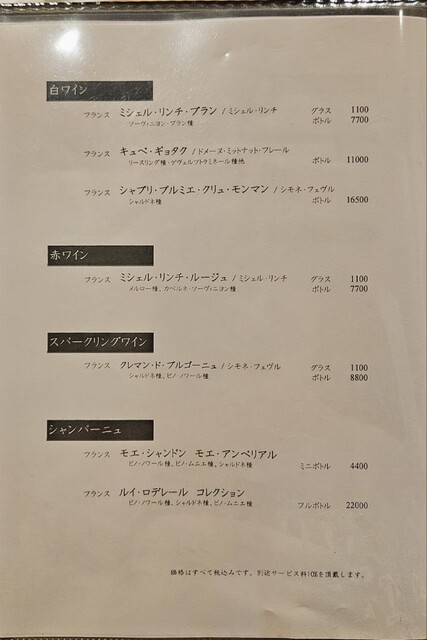 白ワイン
フランス ミシェル・リンチ・ブラン / ミシェル・リンチ グラス 1100
ソーヴィニヨン・ブラン種 ボトル 7700
フランス キュベ・ギョタク / ドメーヌ・ミットナット・フレール
リースリング種・ゲヴュルツトラミネール種他 ボトル 11000
フランス シャブリ・プルミエ・クリュ・モンマン / シモネ・フェヴル
シャルドネ種 ボトル 16500
赤ワイン
フランス ミシェル・リンチ・ルージュ / ミシェル・リンチ グラス 1100
メルロー種、カベルネ・ソーヴィニヨン種 ボトル 7700
スパークリングワイン
フランス クレマン・ド・ブルゴーニュ / シモネ・フェヴル グラス 1100
シャルドネ種、ピノ・ノワール種 ボトル 8800
シャンパーニュ
フランス モエ・シャンドン モエ・アンペリアル
ピノ・ノワール種、ピノ・ムニエ種、シャルドネ種 ミニボトル 4400
フランス ルイ・ロデレール コレクション
ピノ・ノワール種、シャルドネ種、ピノ・ムニエ種 フルボトル 22000
価格はすべて税込みです。別途サービス料10%を頂戴します。